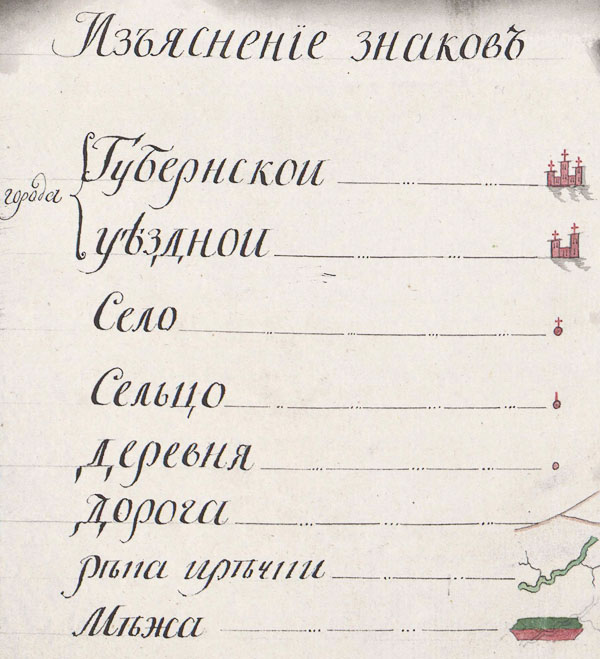 Изъясненїе знаковъ
города
Губернскои
уѣзднои
Село
Сельцо
деревня
дорога
рѣка ирѣчки
Мѣжа